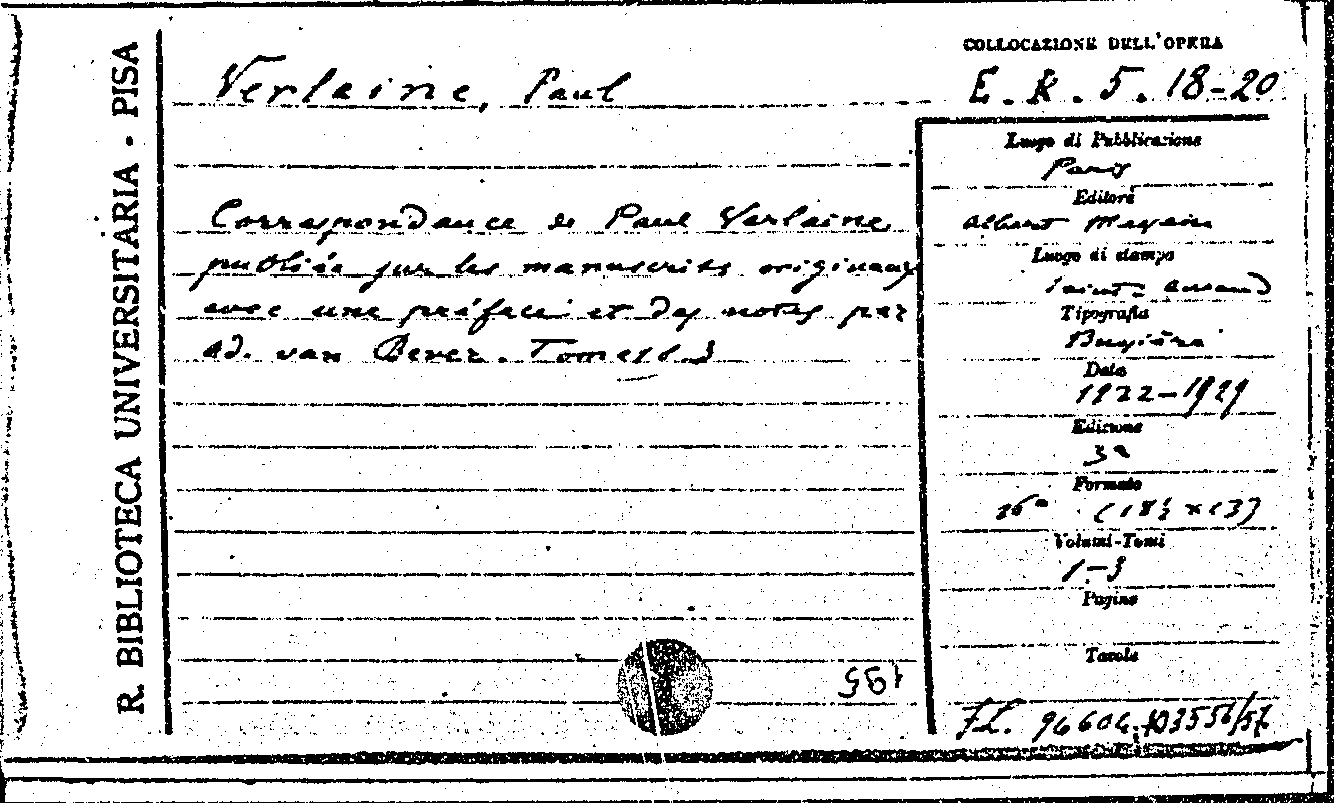 R. BIBLIOTECA UNIVERSITARIA - PISA
Verlaine, Paul
Correspondance de Paul Verlaine
publiée sur les manuscrits originaux
avec une préface et des notes par
Ad. van Bever. Tome
COLLOCAZIONE DELL'OPERA
E. R. 5. 18-20
Luogo di Pubblicazione
Paris
Editore
Albert Messein
Luogo di stampa
Saint-Amand
Tipografia
Bussière
Data
1922-1929
Edizione
3ª
Formato
16° (18½ x 13)
Volumi-Tomi
1-3
Pagine
Tavole
96604. 103556/57